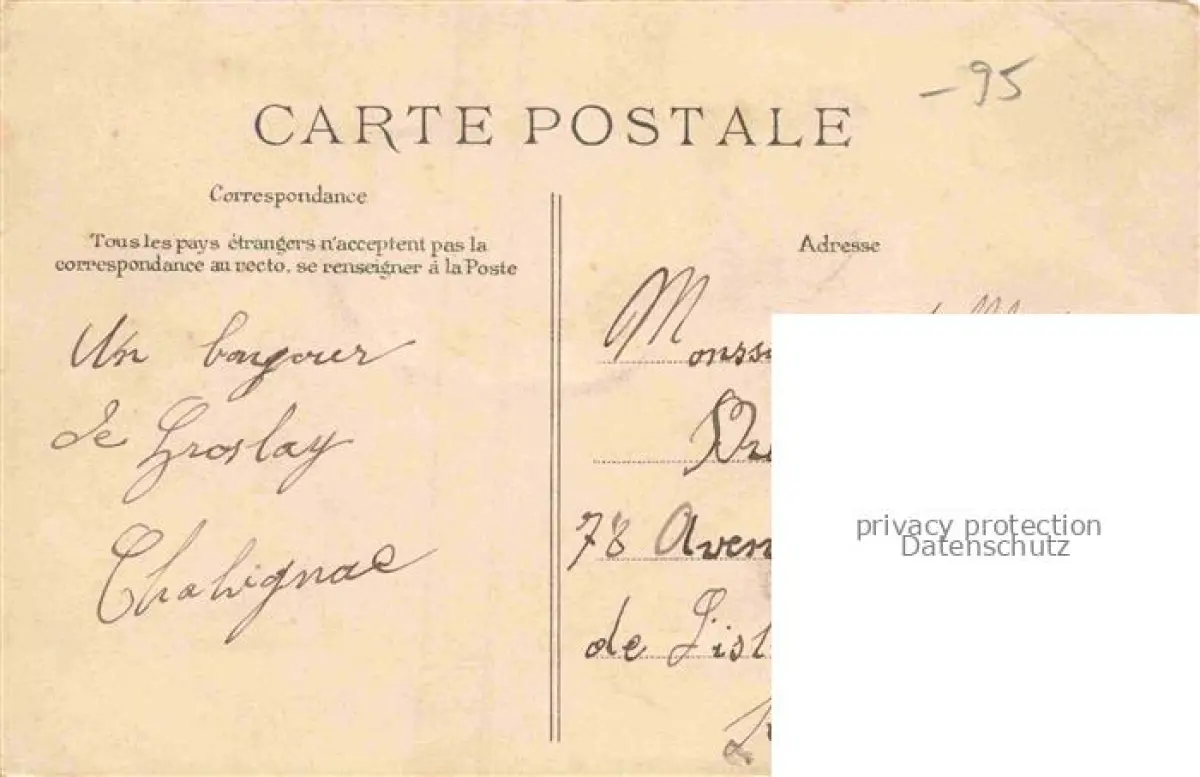 – 95
CARTE POSTALE
Correspondance
Tous les pays étrangers n'acceptent pas la
correspondance au recto, se renseigner à la Poste
Adresse
Un bonjour
de Groslay
78 Aven
de L'isl
privacy protection
Datenschutz